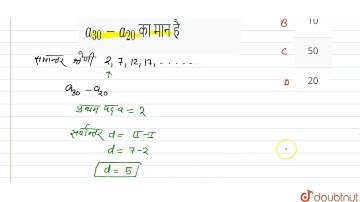 a₃₀ – a₂₀ का मान है
समान्तर श्रेणी 2, 7, 12, 17, ......
a₃₀ – a₂₀
प्रथम पद a = 2
सर्वान्तर d = II – I
d = 7 – 2
d = 5
B 10
C 50
D 20
doubtnut